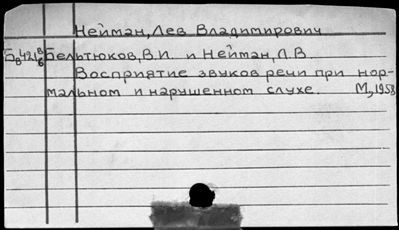 Нейман, Лев Владимирович
Бельтюков, В.И. и Нейман, Л.В.
Восприятие звуков речи при нор-
мальном и нарушенном слухе. М, 1958